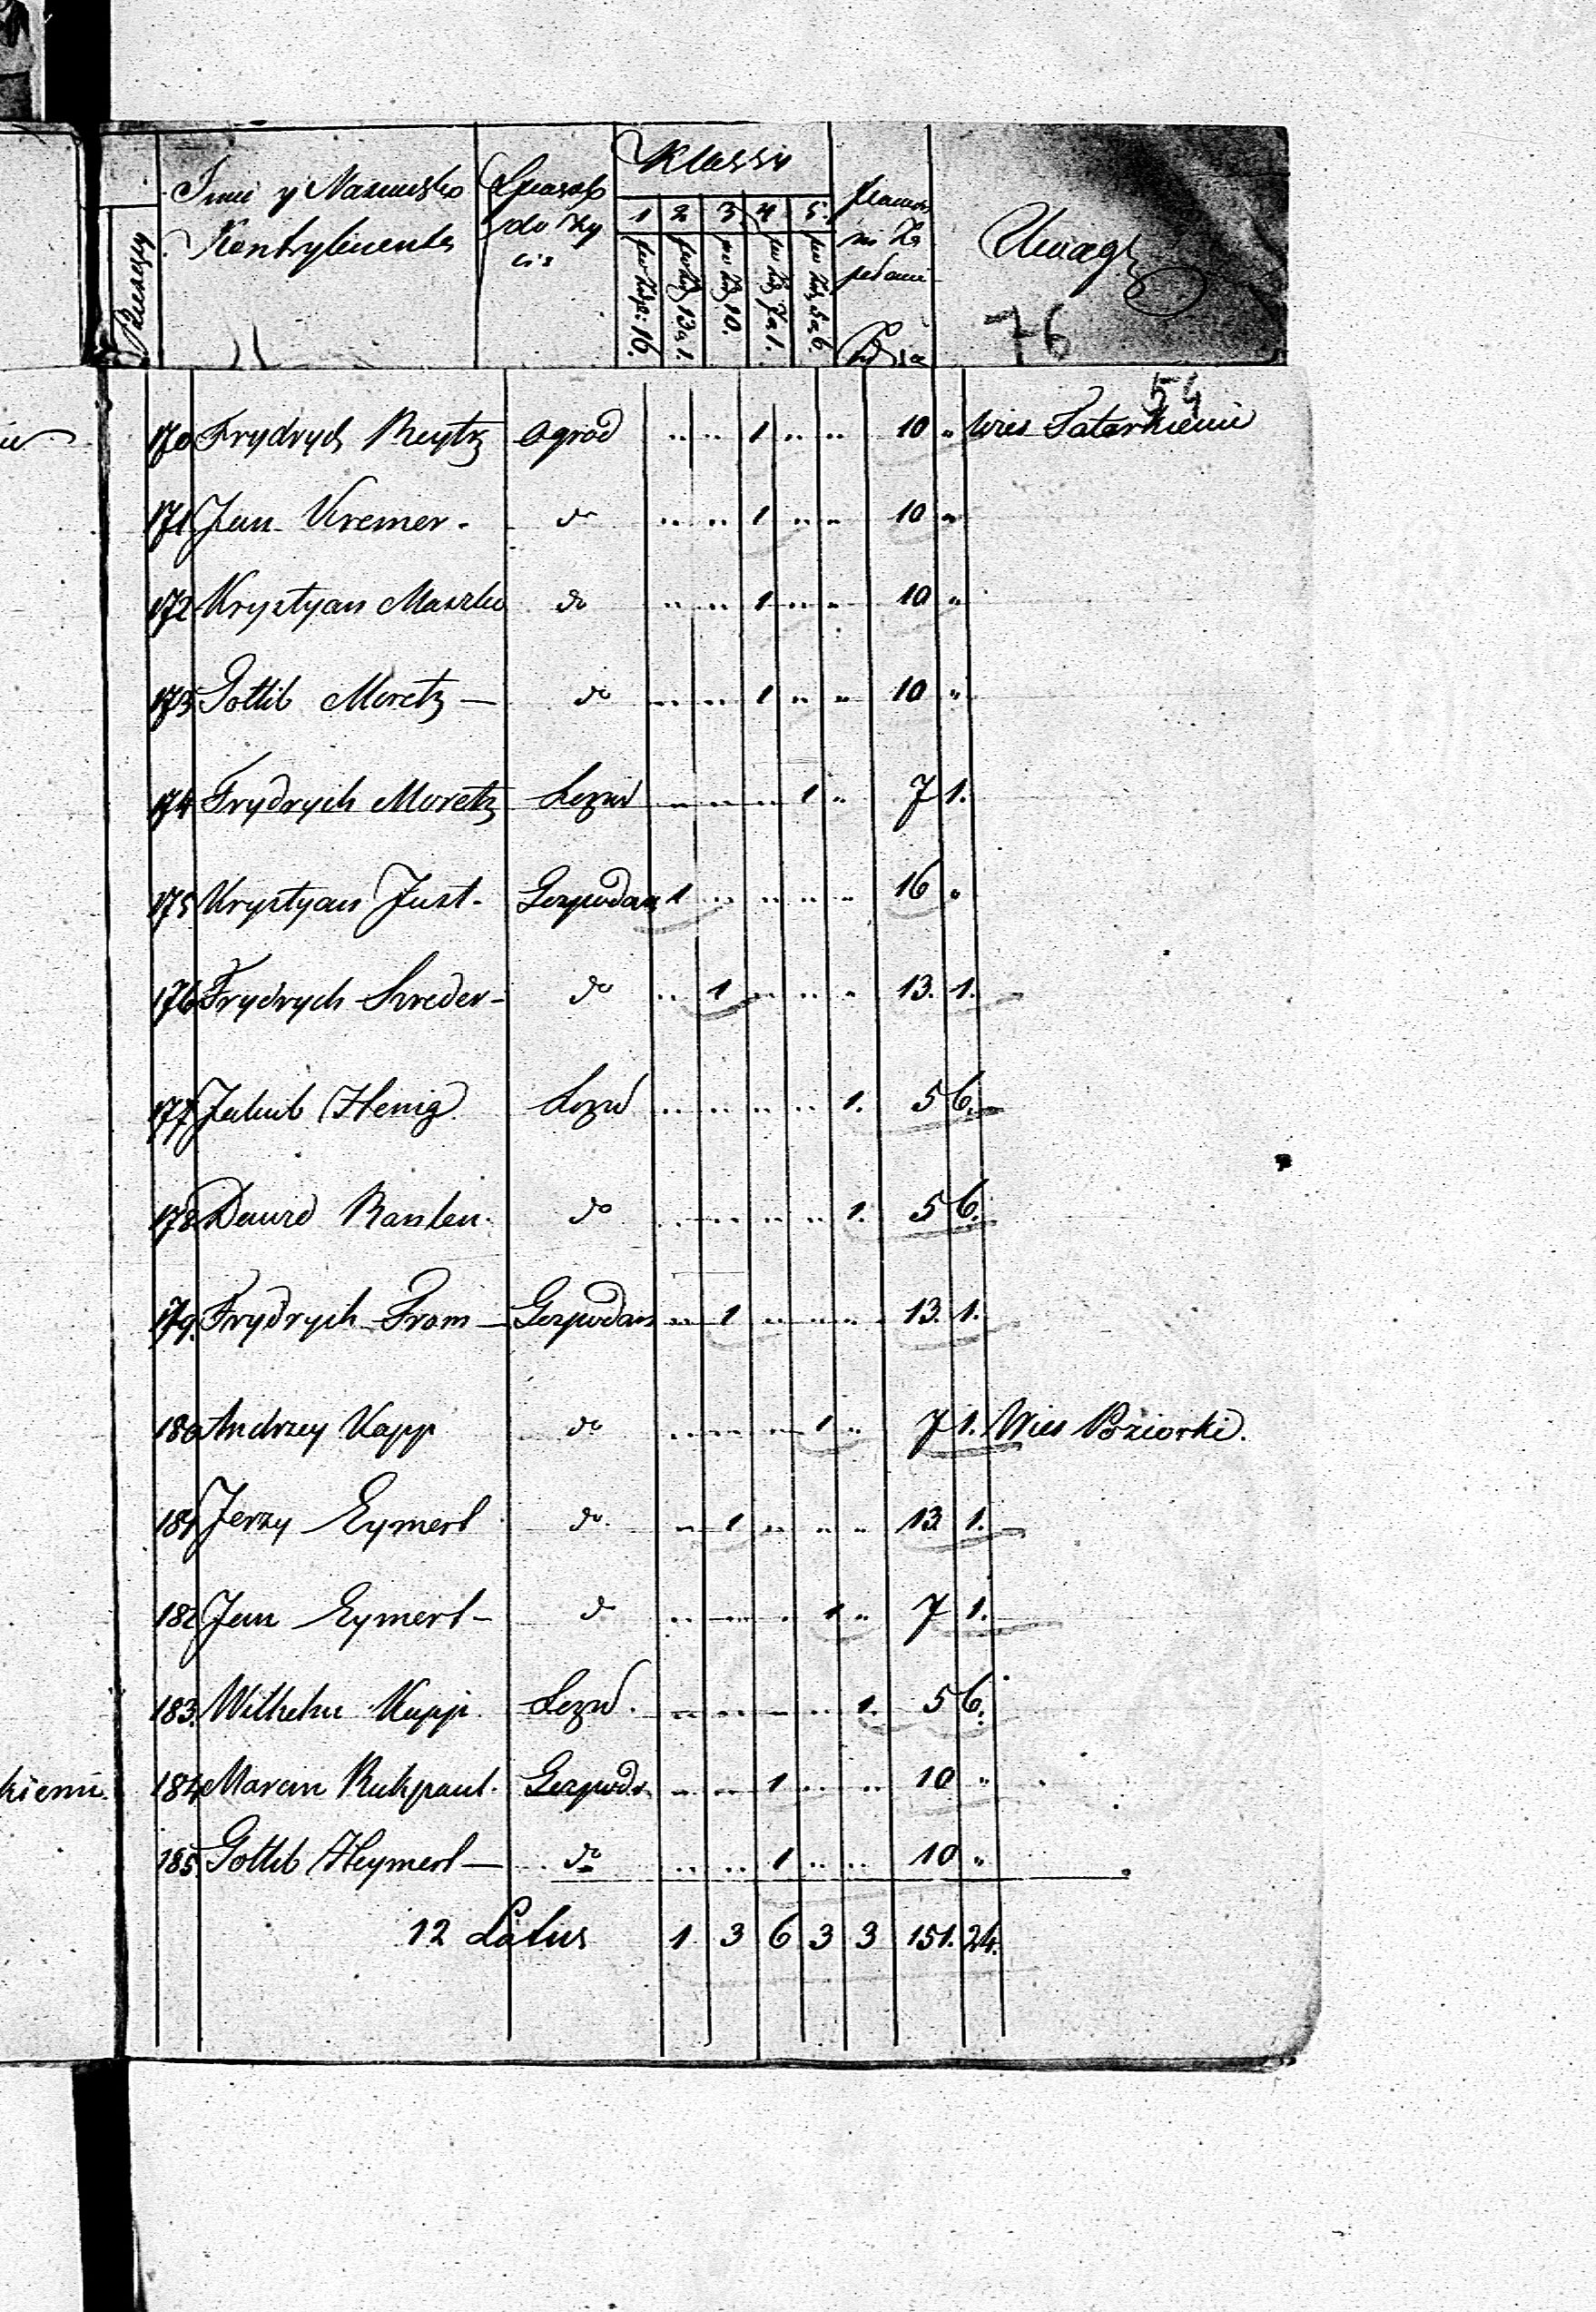 Klassy
Imie y Nazwisko Sposob
1 2 3 4 5.
Kontrybuenta do Zy
cia
Uwagi
76
54
170 Frydrych Reytz Ogrod .. .. 1 .. .. 10 " Wies Tatarkienie
171 Jan Kremer. do .. .. 1 .. .. 10 "
172 Krystyan Maszke do .. .. 1 .. .. 10 "
173 Gottlib Moretz — do .. .. 1 .. .. 10 "
174 Frydrych Moretz Lozny .. .. .. 1 .. 7 1.
175 Krystyan Just. Gospodarz 1 .. .. .. .. 16 "
176 Frydrych Szreder - do .. 1 .. .. .. 13. 1.
177 Jakub Henig Lozny .. .. .. .. 1. 5 6.
178 Dawid do .. .. .. .. 1. 5 6.
179. Frydrych From — Gospodarz .. 1 .. .. .. 13. 1.
180 Andrzey Kapp do .. .. .. 1 .. 7 1. Wies Bziorki.
181 Jerzy Eymert do .. 1 .. .. .. 13 1.
182 Jan Eymert - do .. .. .. 1 .. 7 1.
183. Wilhelm Kapp. Lozny. .. .. .. .. 1. 5 6.
184 Marcin Ruhpaul. Gospodar .. .. 1 .. .. 10 "
185. Gottlib Heymert — do .. .. 1 .. .. 10 "
12 Latus 1. 3 6 3 3 151. 24.